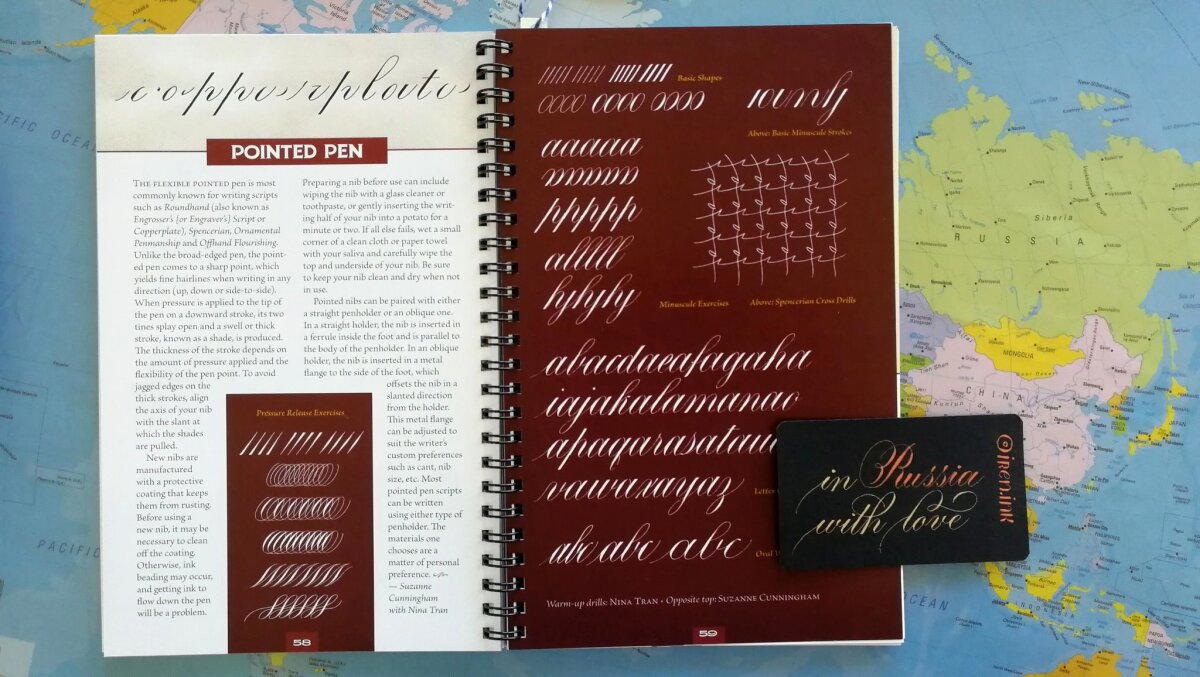 copperplate
POINTED PEN
THE FLEXIBLE POINTED pen is most
commonly known for writing scripts
such as Roundhand (also known as
Engrosser's [or Engraver's] Script or
Copperplate), Spencerian, Ornamental
Penmanship and Offhand Flourishing.
Unlike the broad-edged pen, the point-
ed pen comes to a sharp point, which
yields fine hairlines when writing in any
direction (up, down or side-to-side).
When pressure is applied to the tip of
the pen on a downward stroke, its two
tines splay open and a swell or thick
stroke, known as a shade, is produced.
The thickness of the stroke depends on
the amount of pressure applied and the
flexibility of the pen point. To avoid
jagged edges on the
thick strokes, align
the axis of your nib
with the slant at
which the shades
are pulled.
New nibs are
manufactured
with a protective
coating that keeps
them from rusting.
Before using a
new nib, it may be
necessary to clean
off the coating.
Otherwise, ink
beading may occur,
and getting ink to
flow down the pen
will be a problem.
Preparing a nib before use can include
wiping the nib with a glass cleaner or
toothpaste, or gently inserting the writ-
ing half of your nib into a potato for a
minute or two. If all else fails, wet a small
corner of a clean cloth or paper towel
with your saliva and carefully wipe the
top and underside of your nib. Be sure
to keep your nib clean and dry when not
in use.
Pointed nibs can be paired with either
a straight penholder or an oblique one.
In a straight holder, the nib is inserted in
a ferrule inside the foot and is parallel to
the body of the penholder. In an oblique
holder, the nib is inserted in a metal
flange to the side of the foot, which
offsets the nib in a
slanted direction
from the holder.
This metal flange
can be adjusted to
suit the writer's
custom preferences
such as cant, nib
size, etc. Most
pointed pen scripts
can be written
using either type of
penholder. The
materials one
chooses are a
matter of personal
preference.
— Suzanne
Cunningham
with Nina Tran
Pressure Release Exercises
58
Basic Shapes
Above: Basic Minuscule Strokes
aaaaa
ppppp
alllll
hyhyhy
Minuscule Exercises
Above: Spencerian Cross Drills
abacadaeafagaha
iajakalamanao
apaqarasatau
vawaxayaz
Letter
abc abc abc
Oval
WARM-UP DRILLS: NINA TRAN • OPPOSITE TOP: SUZANNE CUNNINGHAM
59
in Russia
with love
@iren.ink
RUSSIA
Siberia
MONGOLIA
CHINA
JAPAN
PACIFIC
OCEAN